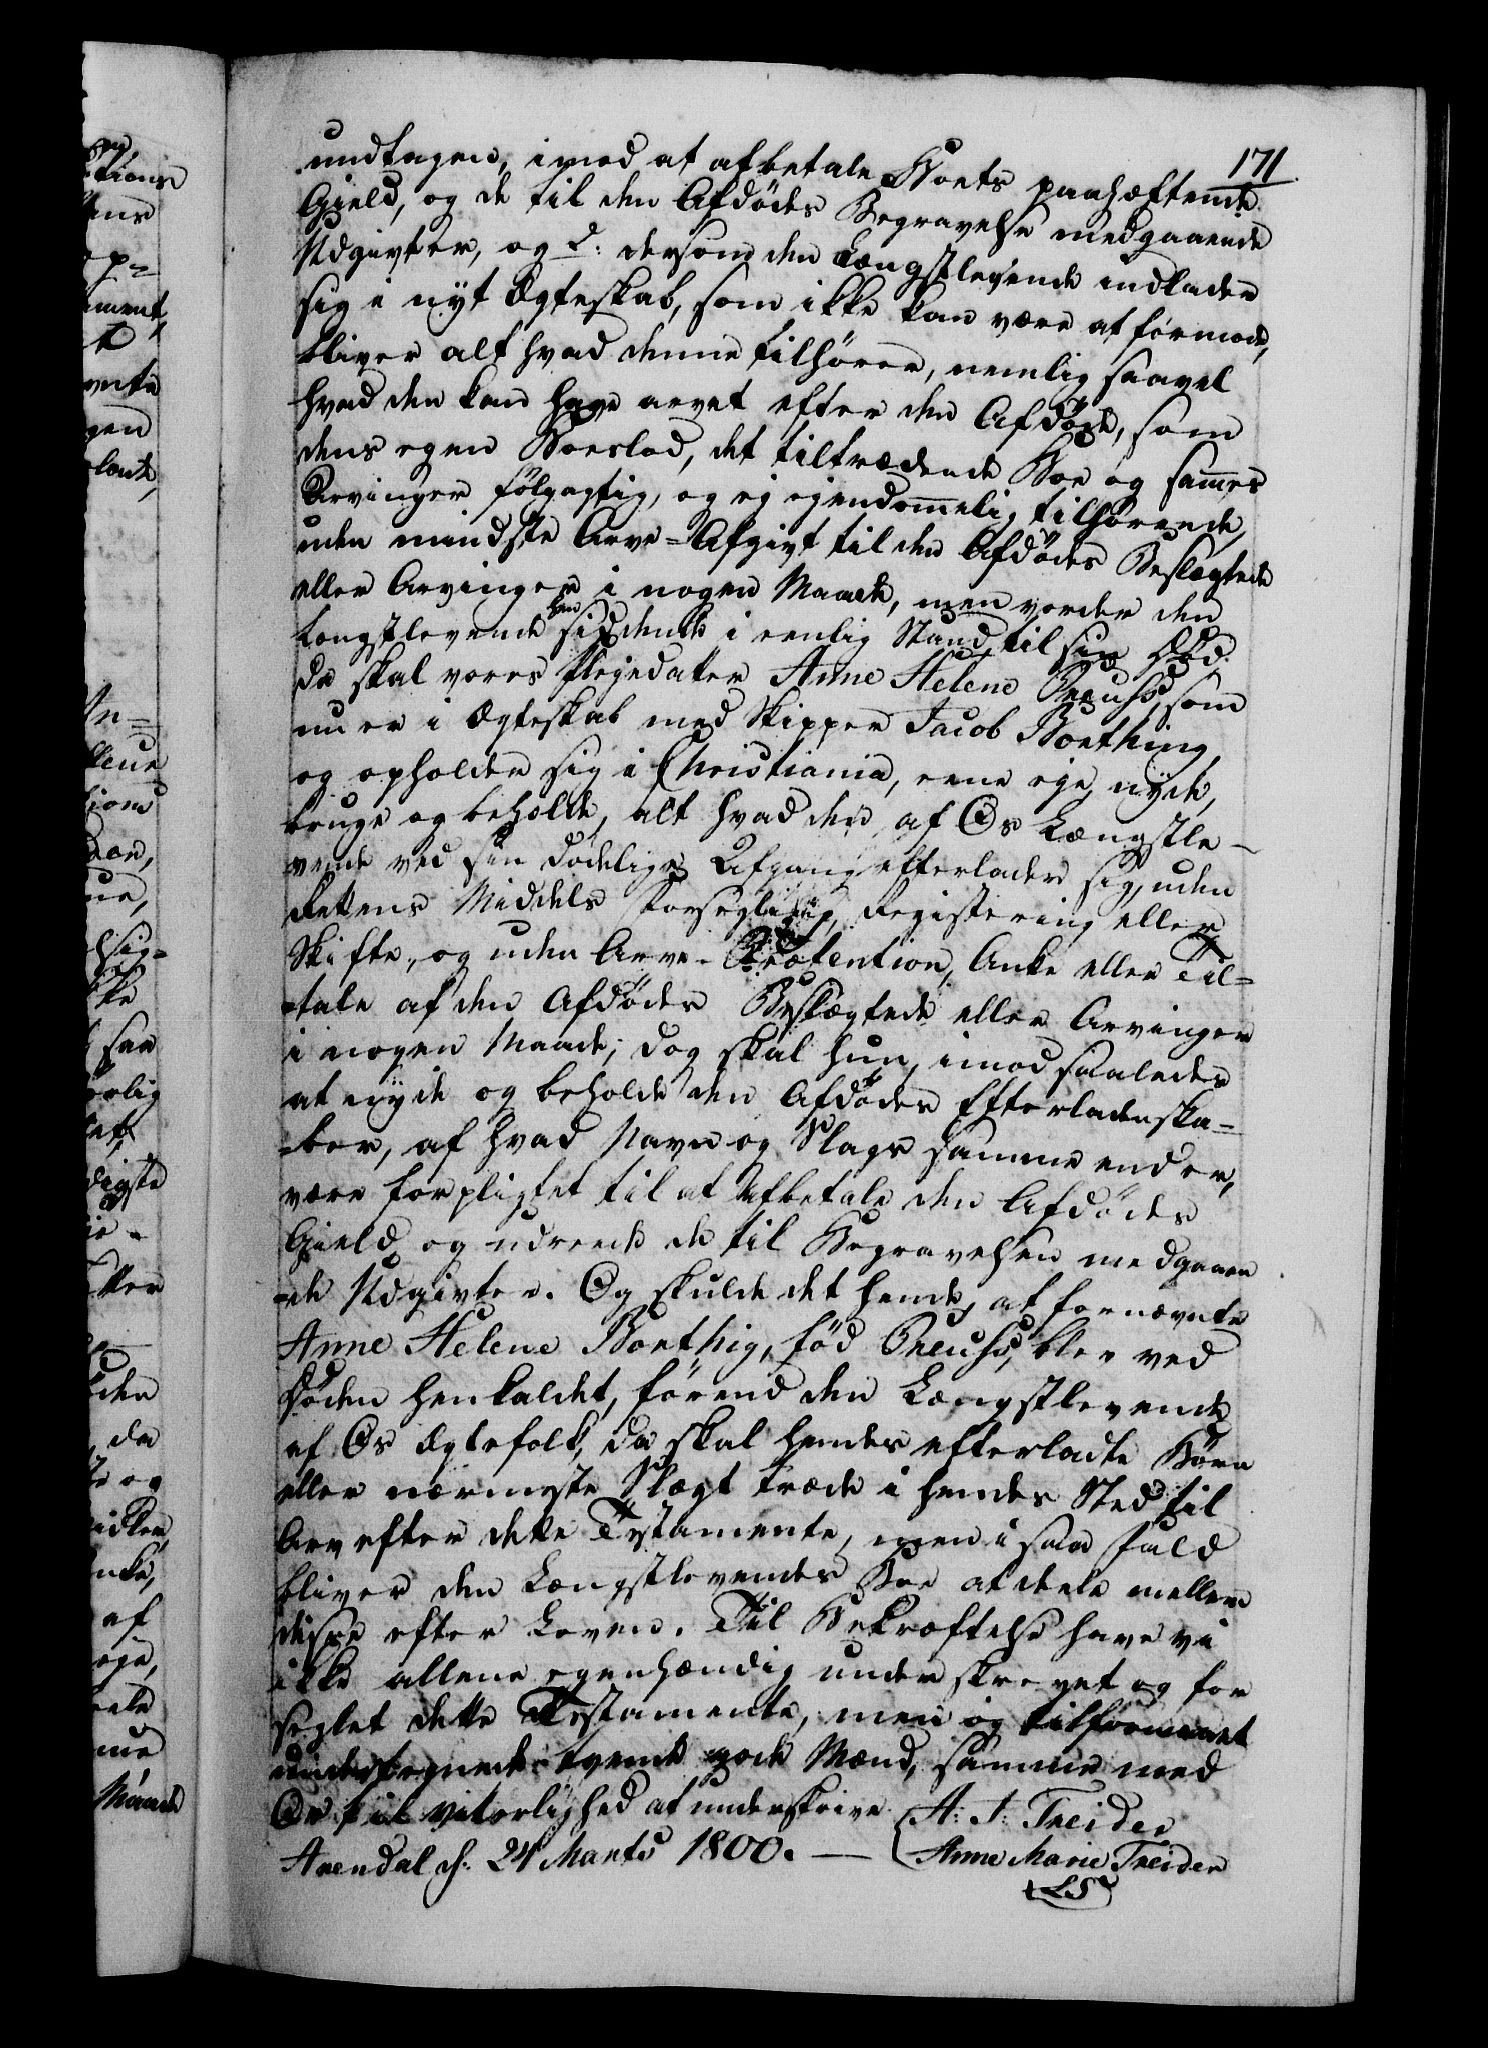 171
undtagen, imod at afbetale Boets paahæftende
Gield, og de til den Afdødes Begravelse medgaaende
Udgivter, og d: dersom den Længstlevende indlader
sig i nyt Ægteskab, som ikke kan være at formode,
bliver alt hvad denne tilhører, nemlig saavel
hvad den kan have arvet efter den Afdøde, som
dens egen Boeslod, det tiltrædende Boe og sammes
Arvinger følgagtig, og ej ejendommelig tilhørende,
uden mindste Arve-Afgivt til den Afdødes Beslægtede
eller Arvinger i nogen Maade, men vorder den
Længstlevende hen siddende i eenlig Stand til sin Død
da skal vores Plejedatter Anne Helene Preuhs, som
nu er i Ægteskab med Skipper Jacob Boething,
og opholder sig i Christiania, eene eje, nyde,
bruge og beholde, alt hvad den af Os Længstle-
vende ved sin dødelige Afgang efterlader sig, uden
Rettens Middels Forsegling, Registering eller
Skifte, og uden Arve-Prætention, Anke eller Til=
=tale af den Afdødes Beslægtede eller Arvinger
i nogen Maade; dog skal hun, imod saaledes
at nyde og beholde den Afdødes Efterladenska=
=ber, af hvad Navn og Slags samme end er,
være forpligtet til at afbetale den Afdødes
Gield og udreede de til Begravelsen medgaaen
=de Udgivter. Og skulde det hende, at fornævnte
Anne Helene Boethig, fød Preuhs, blev ved
Døden henkaldet, førend den Længstlevende
af Os Ægtefolk, da skal hendes efterladte Børn
eller nærmeste Slægt træde i hendes Sted til
Arv efter dette Testamente, men i saa Fald
bliver den Længstlevendes Boe at deele mellem
disse efter Loven. Til Bekræftelse have vi
ikke allene egenhændig underskrevet og for
seglet dette Testamente, men og tilformaaet
undertegnede tvende gode Mænd, samme med
Os til Vitterlighed at underskrive.
Arendal d: 24 Marts 1800. — A: T. Treider
Anne Marie Treider
(LS)